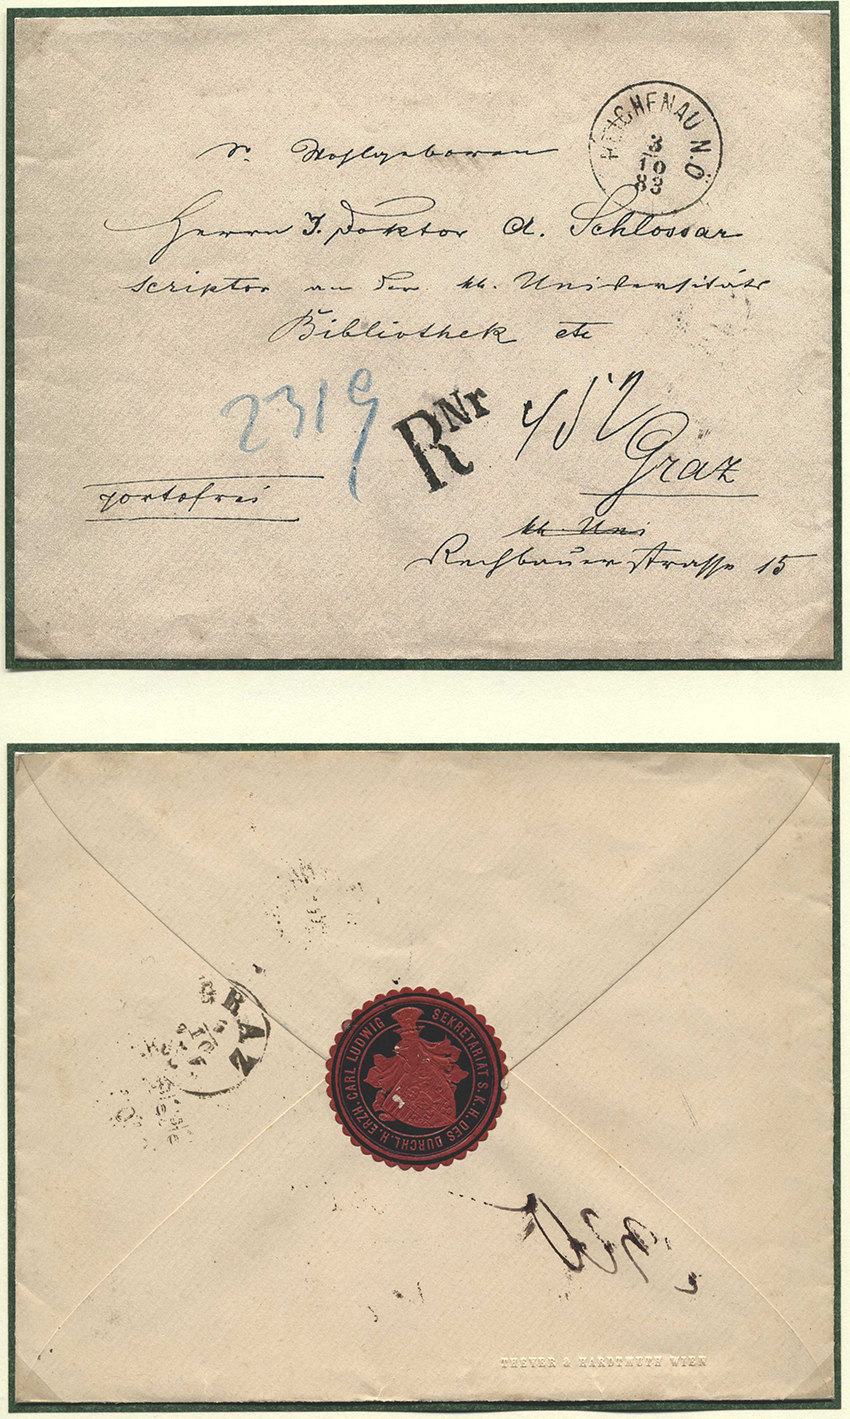 REICHENAU N.Ö
8/8
80
Sr. Wohlgeboren
Herrn J. Doktor A. Schlossar
Scriptor an der kk. Universitäts
Bibliothek etc
2319
RNr
Graz
portofrei
kk. Uni
Rechbauerstrasse 15
GRAZ
SEKRETARIAT S. K. H. DES DURCHL. H. ERZH. CARL LUDWIG
THEYER & HARDTMUTH WIEN